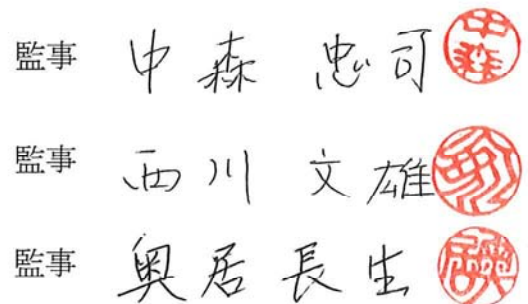 監事 中森 忠司 中森
監事 西川 文雄
監事 奥居 長生